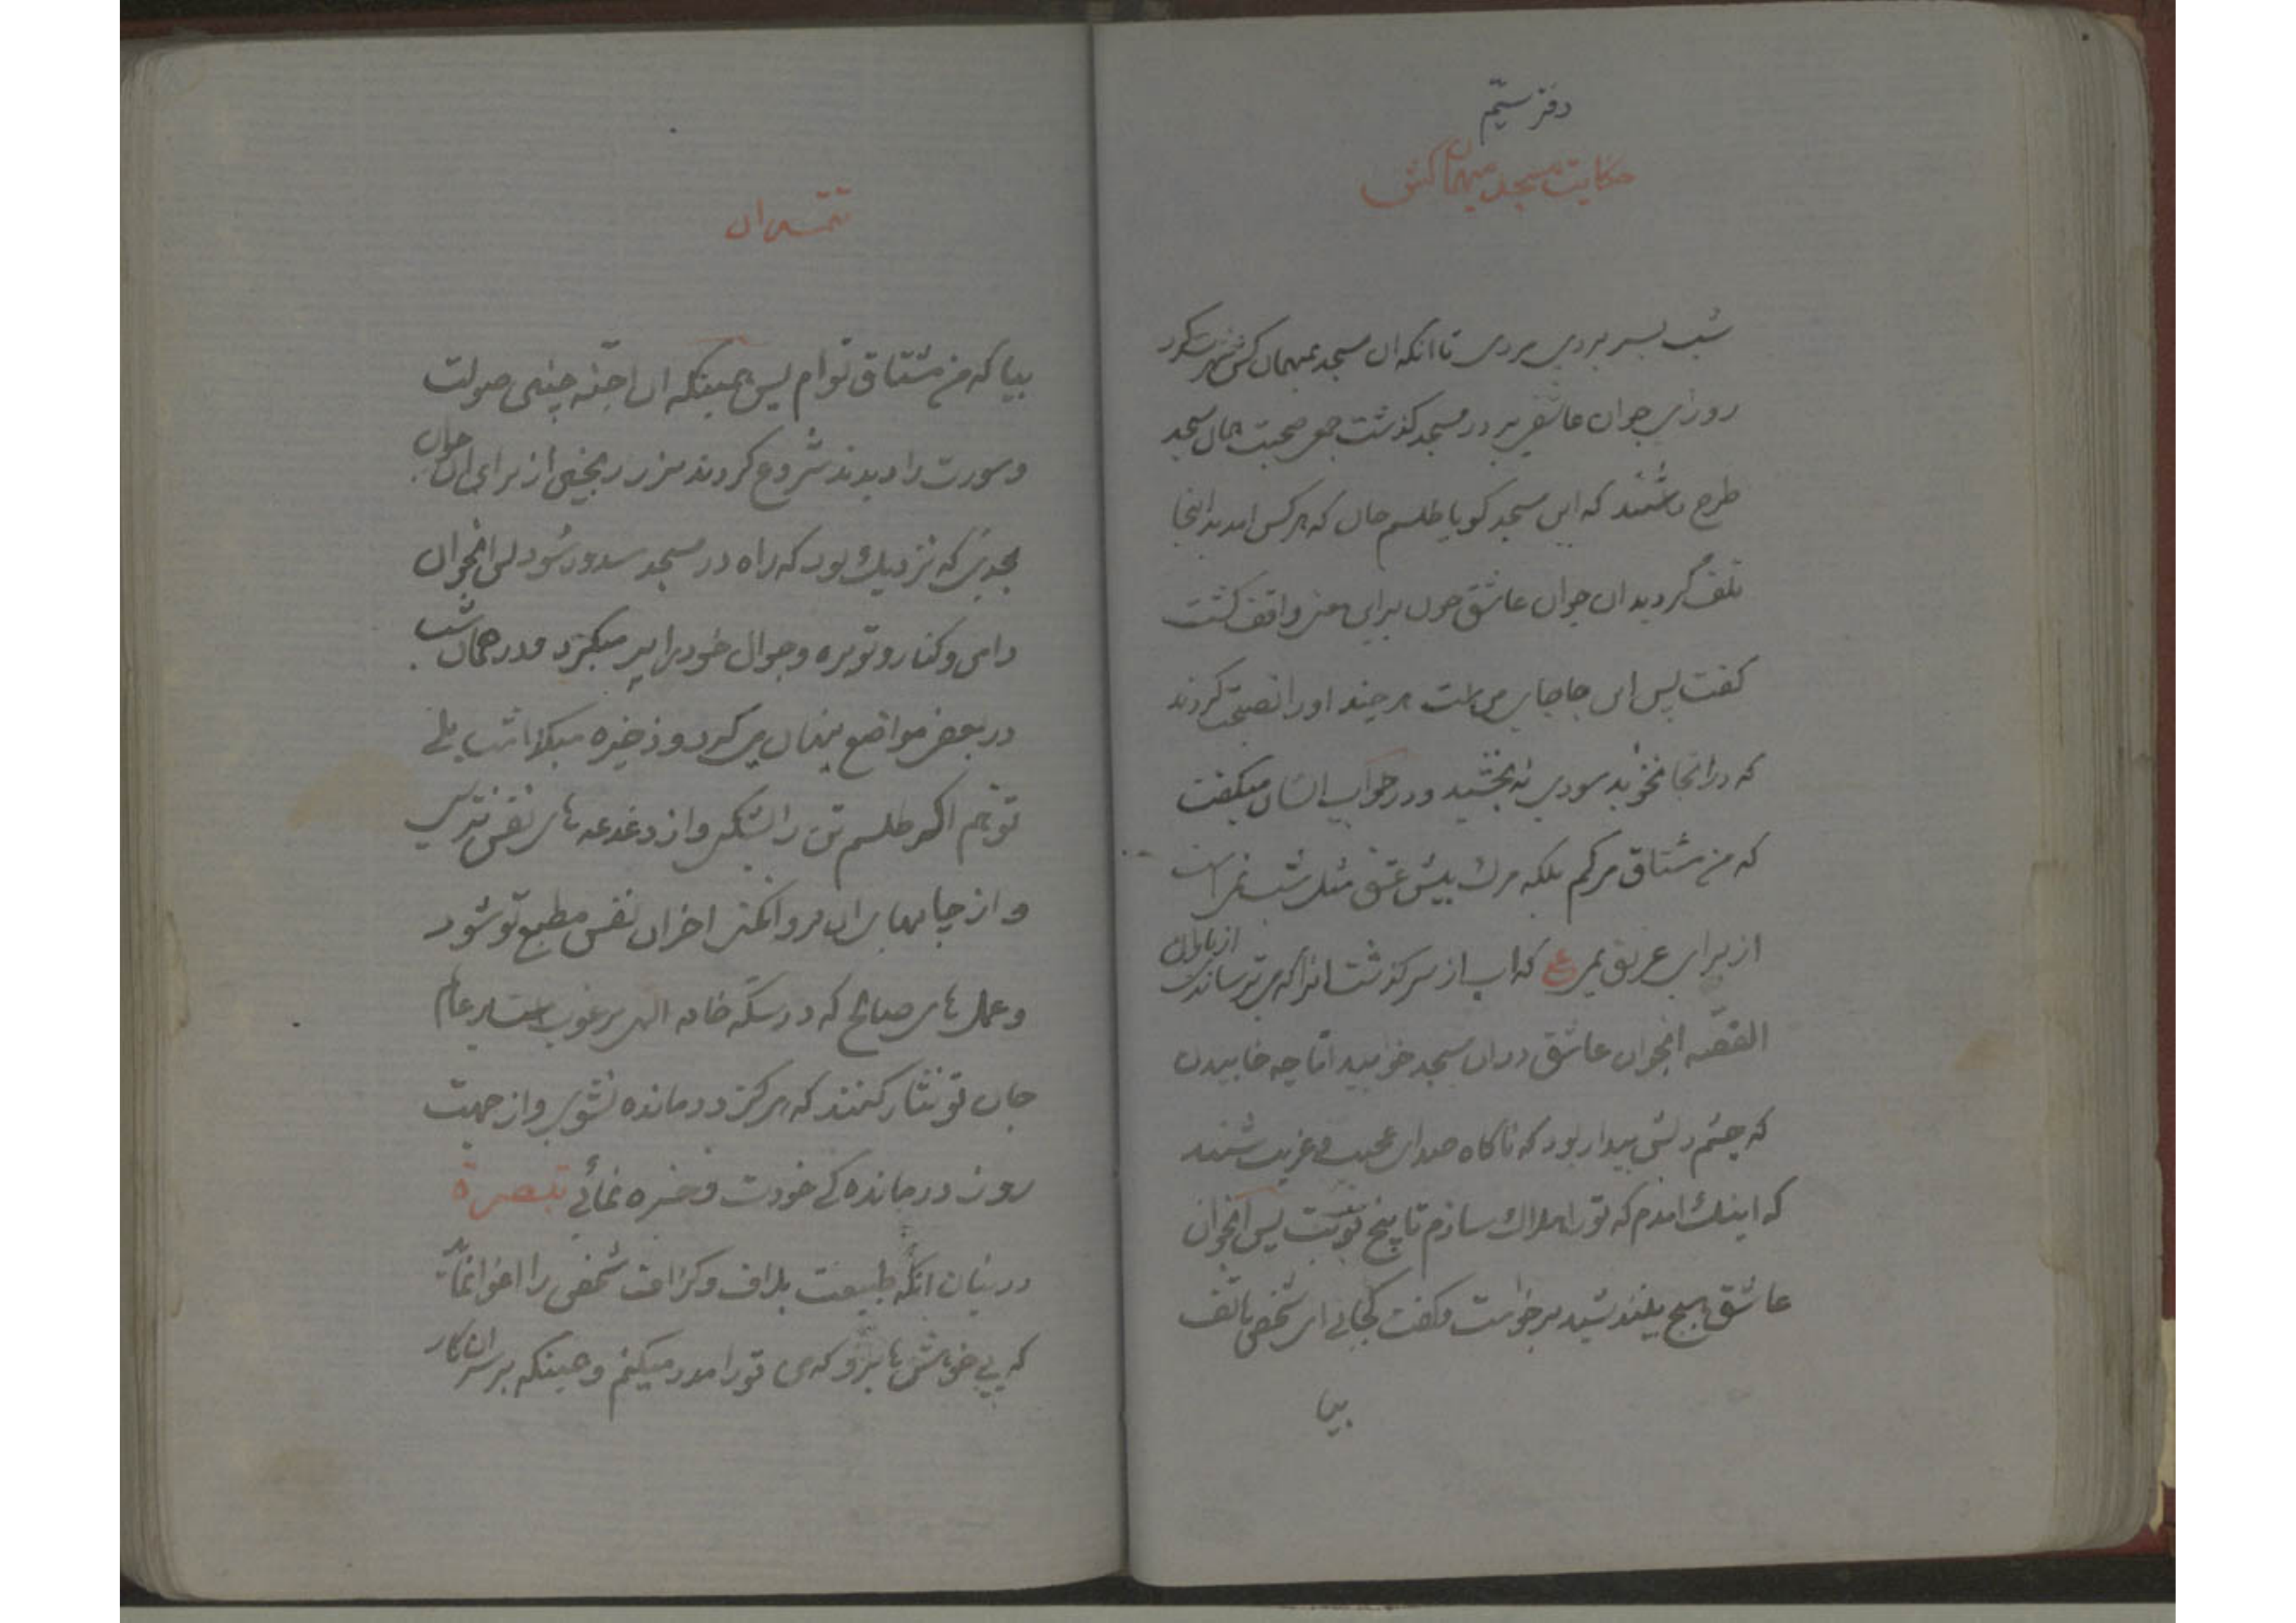 دفتر سیّم
حکایت مسجد میهمان کش
شب بسر بردی مردی تا انکه ان مسجد بمیهمان کش شهرت کرد
روزی جوان عاشقی بر در مسجد کذشت جمعی صحبت همان مسجد
طرح داشتند که این مسجد کویا طلسم جان که هرکس امد بدانجا
تلف گردید ان جوان عاشق چون براین معنی واقف کشت
کفت پس این جا جای من است هرچند او را نصیحت کردند
که در انجا نخوابد سودی نه بخشید و در جواب ایشان میکفت
که من مشتاق مرکم بلکه مرک پیش عشق مثل شب است
از برای غریق یمی ع که اب از سر کذشت انرا که می ترسانی از باران
القصّه انجوان عاشق در ان مسجد خوابید امّا چه خابیدن
که چشم دلش بیدار بود که ناکاه صدای عجیب و غریب شنید
که اینک امدم که تو را هلاک سازم تا پنج نوبت پس انجوان
عاشق هیچ نیندیشید برخواست و کفت کجائی ای شخص هاتف
بیا
تتمه ان
بیا که من مشتاق توام پس همینکه ان اجنّه چنین صولت
و سورت را دیدند شروع کردند بزر ریختن از برای ان جوان
بحدی که نزدیک بود که راه در مسجد سدود شود پس انجوان
دامن و کنار و توبره و جوال خود را پر میکرد و در همان شب
در بعض مواضع پنهان می کرد و ذخیره میکذاشت بلی
تو هم اگر طلسم تن را بشکنی و از دغدغه های نفس نترسی
و از چاپهای ان پروا نکنی اخر ان نفس مطیع تو شود
و عمل های صالح که در سکّه خانه الهی مرغوب است بر عام
جان تو نثار کنند که هرکز درمانده نشوی و از جهت
روز درمانده کی خودت ذخیره نمائی تبصرة
در بیان انکه طبیعت بلاف و کزاف شخص را اغوا نماید
که پی خواهش ها برو که من تو را مدد میکنم و همینکه بر سر ان کار